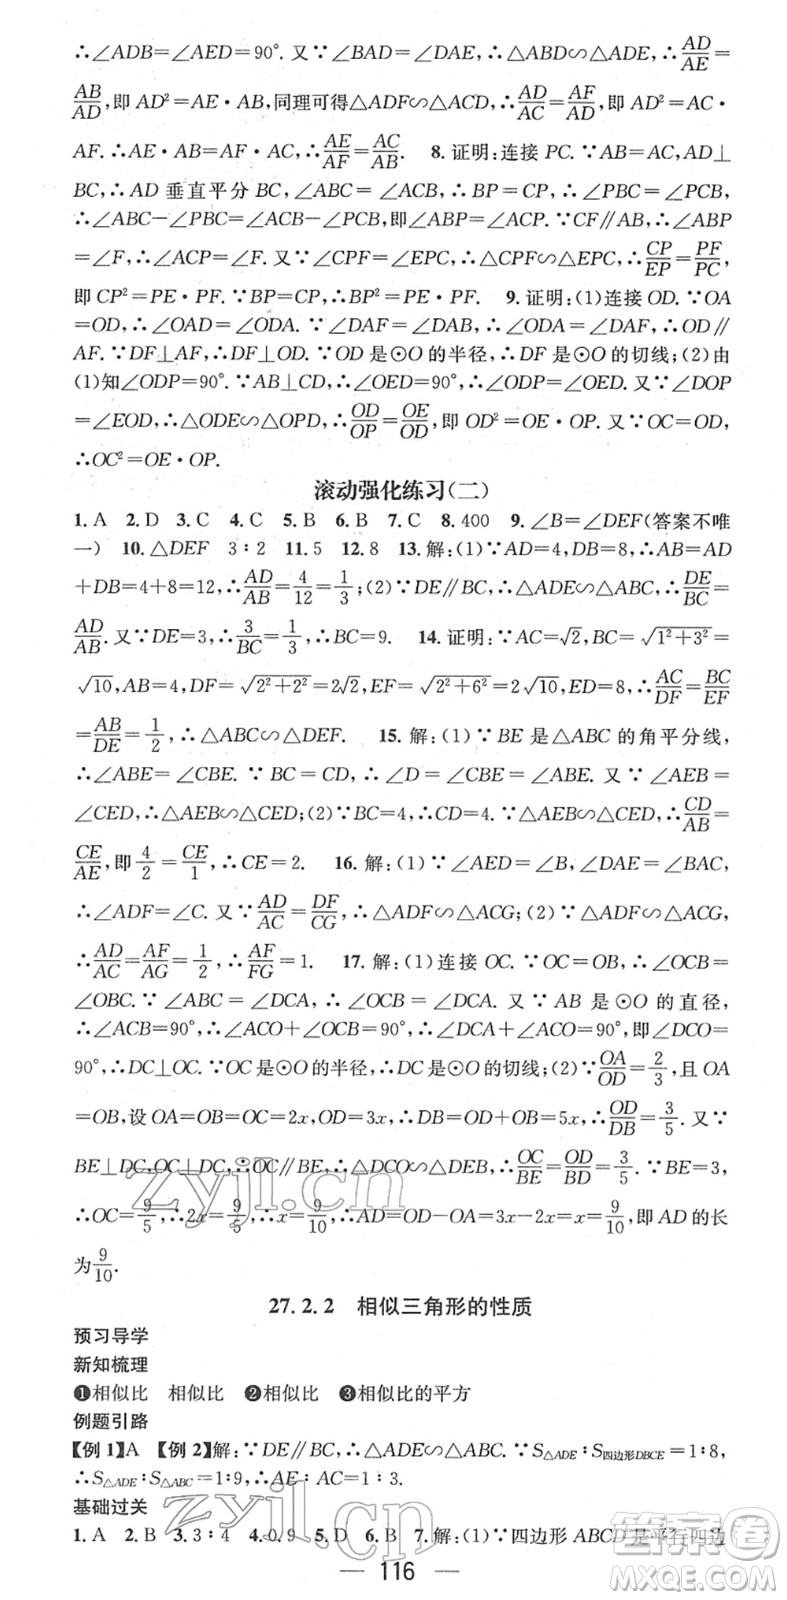 ∴∠ADB=∠AED=90°. 又∵∠BAD=∠DAE,∴△ABD∽△ADE,∴AD/AE=
AB/AD,即 AD²=AE·AB,同理可得△ADF∽△ACD,∴AD/AC=AF/AD,即 AD²=AC·
AF. ∴AE·AB=AF·AC,∴AE/AF=AC/AB. 8. 证明:连接 PC. ∵AB=AC,AD⊥
BC,∴AD 垂直平分 BC,∠ABC=∠ACB,∴BP=CP,∴∠PBC=∠PCB,
∴∠ABC-∠PBC=∠ACB-∠PCB,即∠ABP=∠ACP. ∵CF∥AB,∴∠ABP
=∠F,∴∠ACP=∠F. 又∵∠CPF=∠EPC,∴△CPF∽△EPC,∴CP/EP=PF/PC,
即 CP²=PE·PF. ∵BP=CP,∴BP²=PE·PF. 9. 证明:(1)连接 OD. ∵OA
=OD,∴∠OAD=∠ODA. ∵∠DAF=∠DAB,∴∠ODA=∠DAF,∴OD∥
AF. ∵DF⊥AF,∴DF⊥OD. ∵OD 是⊙O 的半径,∴DF 是⊙O 的切线;(2)由
(1)知∠ODP=90°. ∵AB⊥CD,∴∠OED=90°,∴∠ODP=∠OED. 又∵∠DOP
=∠EOD,∴△ODE∽△OPD,∴OD/OP=OE/OD,即 OD²=OE·OP. 又∵OC=OD,
∴OC²=OE·OP.
滚动强化练习(二)
1. A 2. D 3. C 4. C 5. B 6. B 7. C 8. 400 9. ∠B=∠DEF(答案不唯
一) 10. △DEF 3∶2 11. 5 12. 8 13. 解:(1)∵AD=4,DB=8,∴AB=AD
+DB=4+8=12,∴AD/AB=4/12=1/3;(2)∵DE∥BC,∴△ADE∽△ABC,∴DE/BC=
AD/AB. 又∵DE=3,∴3/BC=1/3,∴BC=9. 14. 证明:∵AC=√2,BC=√(1²+3²)=
√10,AB=4,DF=√(2²+2²)=2√2,EF=√(2²+6²)=2√10,ED=8,∴AC/DF=BC/EF
=AB/DE=1/2,∴△ABC∽△DEF. 15. 解:(1)∵BE 是△ABC 的角平分线,
∴∠ABE=∠CBE. ∵BC=CD,∴∠D=∠CBE=∠ABE. 又∵∠AEB=
∠CED,∴△AEB∽△CED;(2)∵BC=4,∴CD=4. ∵△AEB∽△CED,∴CD/AB=
CE/AE,即4/2=CE/1,∴CE=2. 16. 解:(1)∵∠AED=∠B,∠DAE=∠BAC,
∴∠ADF=∠C. 又∵AD/AC=DF/CG,∴△ADF∽△ACG;(2)∵△ADF∽△ACG,
∴AD/AC=AF/AG=1/2,∴AF/FG=1. 17. 解:(1)连接 OC. ∵OC=OB,∴∠OCB=
∠OBC. ∵∠ABC=∠DCA,∴∠OCB=∠DCA. 又∵AB 是⊙O 的直径,
∴∠ACB=90°,∴∠ACO+∠OCB=90°,∴∠ACO+∠DCA=90°,即∠DCO=
90°,∴DC⊥OC. ∵OC 是⊙O 的半径,∴DC 是⊙O 的切线;(2)∵OA/OD=2/3,且 OA
=OB,设 OA=OB=OC=2x,OD=3x,∴DB=OD+OB=5x,∴OD/DB=3/5. 又∵
BE⊥DC,DC⊥OC,∴OC∥BE,∴△DCO∽△DEB,∴OC/BE=OD/BD=3/5. ∵BE=3,
∴OC=9/5,∴2x=9/5,∴x=9/10,∴AD=OD-OA=3x-2x=x=9/10,即 AD 的长
为9/10.
27.2.2 相似三角形的性质
预习导学
新知梳理
❶相似比 相似比 ❷相似比 ❸相似比的平方
例题引路
【例 1】A 【例 2】解:∵DE∥BC,∴△ADE∽△ABC. ∵S△ADE∶S四边形DBCE=1∶8,
∴S△ADE∶S△ABC=1∶9,∴AE∶AC=1∶3.
基础过关
1. A 2. B 3. 3∶4 4. 0.9 5. D 6. B 7. 解:(1)∵四边形 ABCD 是平行四边
116
zyjl.cn
zyjl.cn
答案圈
MXQE.COM